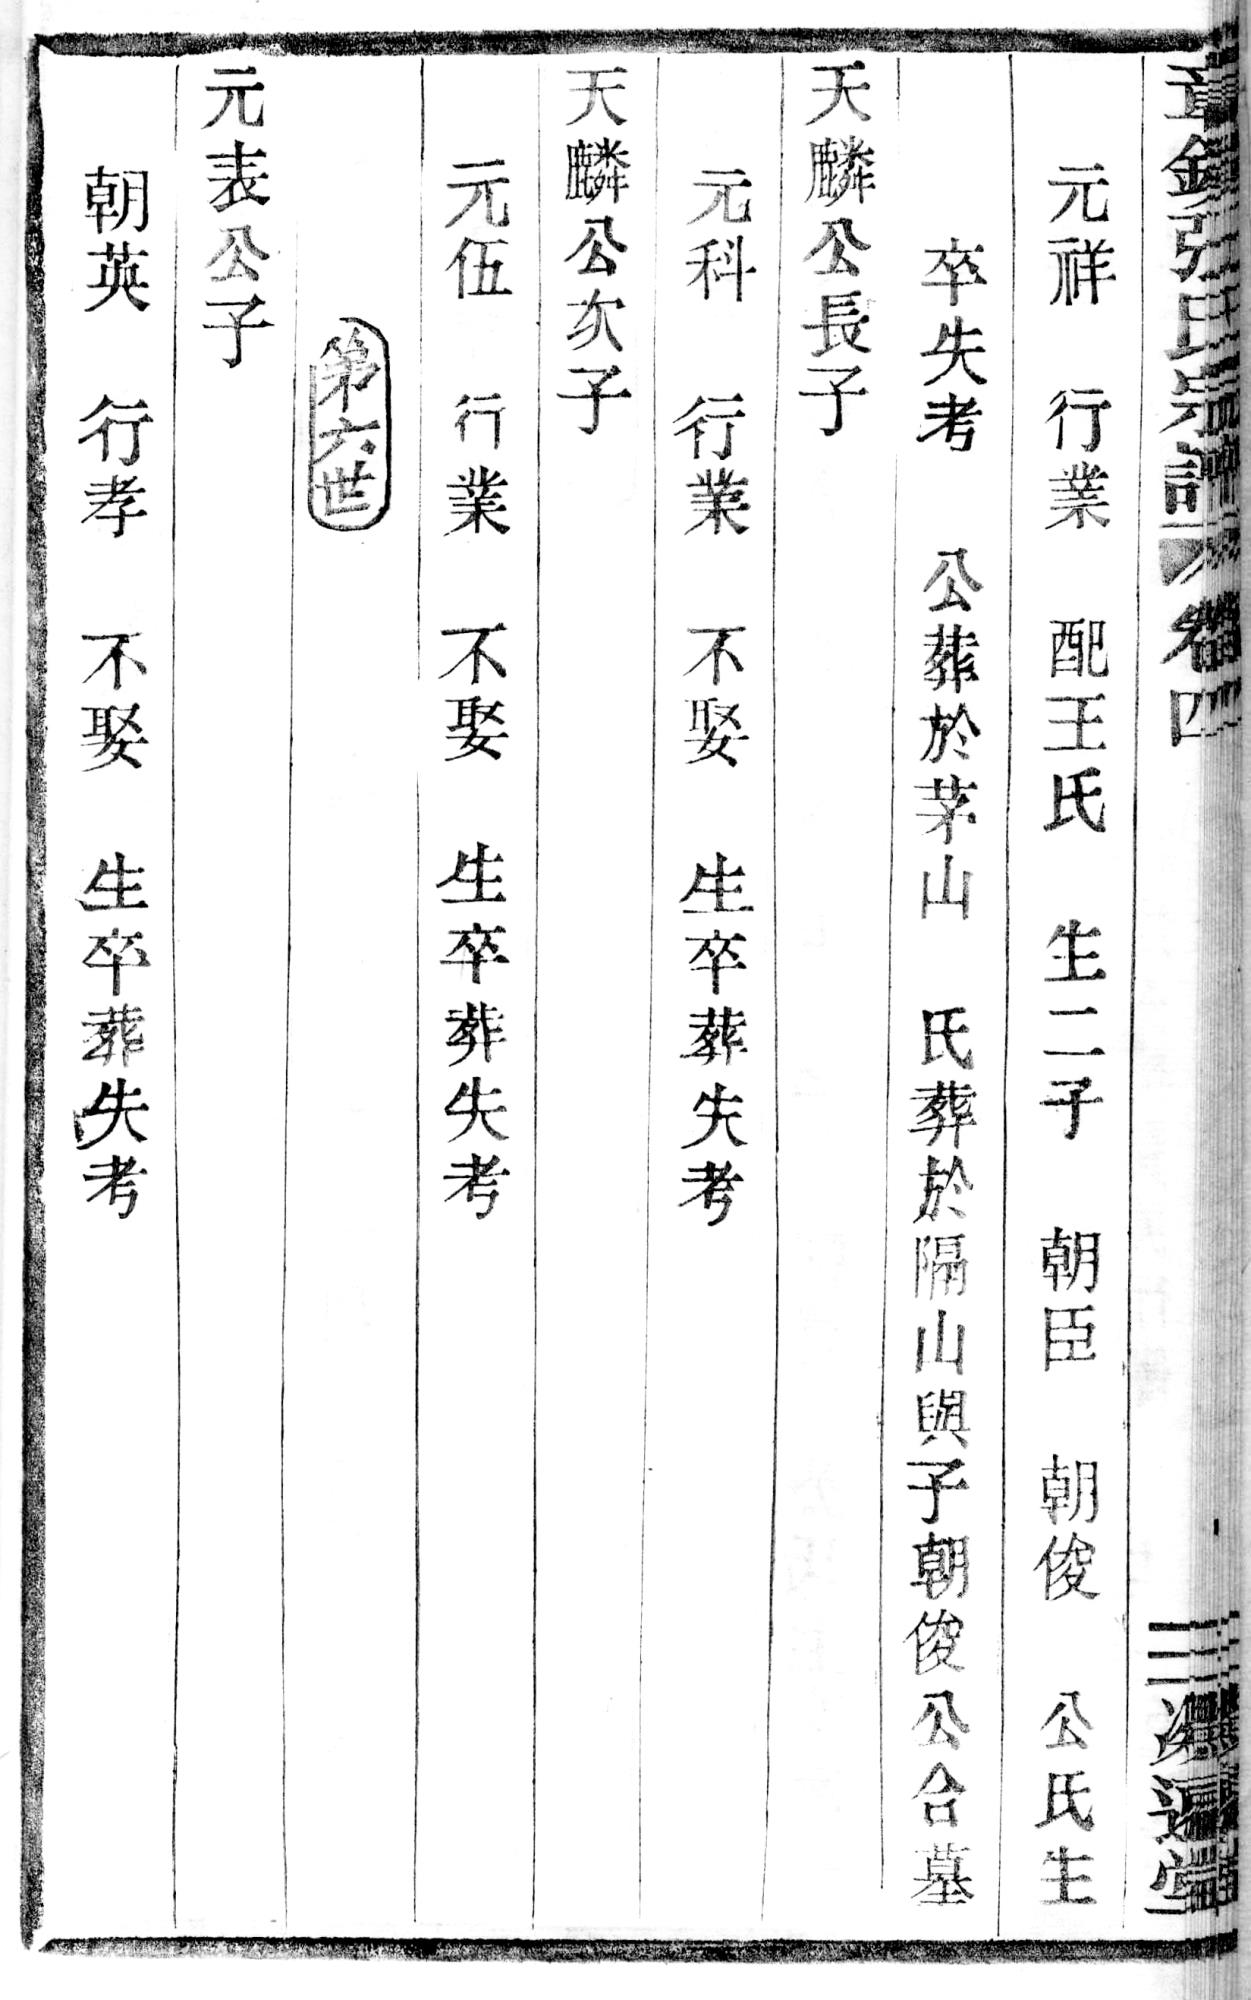 張氏宗譜 卷四
元祥 行業 配王氏 生二子 朝臣 朝俊 公氏生
卒失考 公葬於茅山 氏葬於隔山與子朝俊公合墓
天麟公長子
元科 行業 不娶 生卒葬失考
天麟公次子
元伍 行業 不娶 生卒葬失考
第六世
元表公子
朝英 行孝 不娶 生卒葬失考